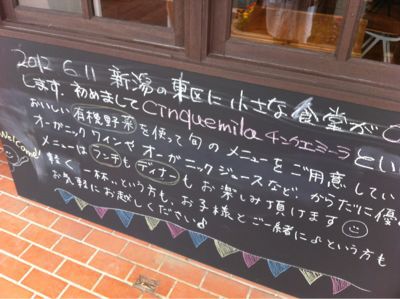 2012 6.11 新潟の東区に小さな食堂が
します。初めましてCinquemila チンクエミーラとい
おいしい有機野菜を使って旬のメニューをご用意してい
オーガニックワインやオーガニックジュースなど からだに優
メニューはランチもディナーもお楽しみ頂けます
軽く一杯..という方も、お子様とご一緒に♪という方も
お気軽にお越しください♪
Welcome!